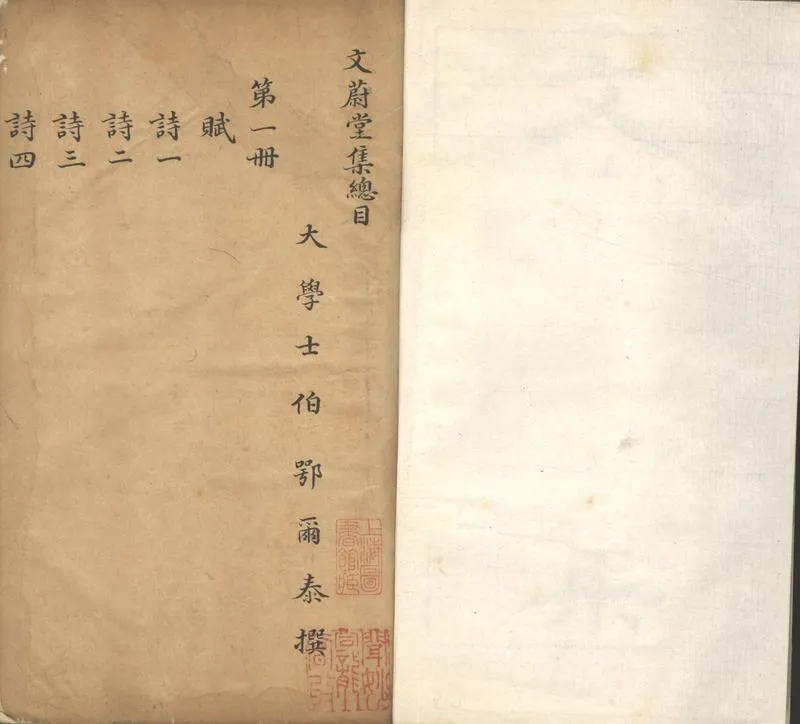 文蔚堂集總目
大學士伯鄂爾泰撰
第一冊
賦
詩一
詩二
詩三
詩四
上海圖書館藏